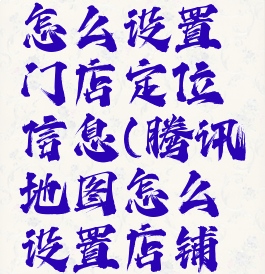 怎么设置
门店定位
信息(腾讯
地图怎么
设置店铺